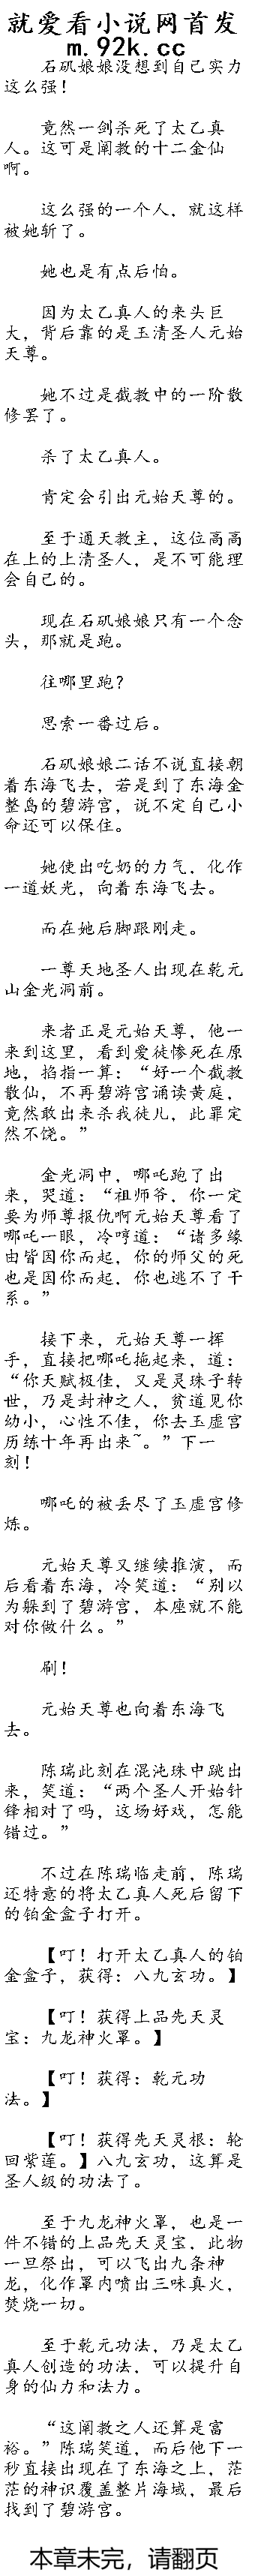 就爱看小说网首发
m.92k.cc
石矶娘娘没想到自己实力
这么强！
竟然一剑杀死了太乙真
人。这可是阐教的十二金仙
啊。
这么强的一个人，就这样
被她斩了。
她也是有点后怕。
因为太乙真人的来头巨
大，背后靠的是玉清圣人元始
天尊。
她不过是截教中的一阶散
修罢了。
杀了太乙真人。
肯定会引出元始天尊的。
至于通天教主，这位高高
在上的上清圣人，是不可能理
会自己的。
现在石矶娘娘只有一个念
头，那就是跑。
往哪里跑？
思索一番过后。
石矶娘娘二话不说直接朝
着东海飞去，若是到了东海金
整岛的碧游宫，说不定自己小
命还可以保住。
她使出吃奶的力气，化作
一道妖光，向着东海飞去。
而在她后脚跟刚走。
一尊天地圣人出现在乾元
山金光洞前。
来者正是元始天尊，他一
来到这里，看到爱徒惨死在原
地，掐指一算：“好一个截教
散仙，不再碧游宫诵读黄庭，
竟然敢出来杀我徒儿，此罪定
然不饶。”
金光洞中，哪吒跑了出
来，哭道：“祖师爷，你一定
要为师尊报仇啊元始天尊看了
哪吒一眼，冷哼道：“诸多缘
由皆因你而起，你的师父的死
也是因你而起，你也逃不了干
系。”
接下来，元始天尊一挥
手，直接把哪吒拖起来，道：
“你天赋极佳，又是灵珠子转
世，乃是封神之人，贫道见你
幼小，心性不佳，你去玉虚宫
历练十年再出来~。”下一
刻！
哪吒的被丢尽了玉虚宫修
炼。
元始天尊又继续推演，而
后看着东海，冷笑道：“别以
为躲到了碧游宫，本座就不能
对你做什么。”
刷！
元始天尊也向着东海飞
去。
陈瑞此刻在混沌珠中跳出
来，笑道：“两个圣人开始针
锋相对了吗，这场好戏，怎能
错过。”
不过在陈瑞临走前，陈瑞
还特意的将太乙真人死后留下
的铂金盒子打开。
【叮！打开太乙真人的铂
金盒子，获得：八九玄功。】
【叮！获得上品先天灵
宝：九龙神火罩。】
【叮！获得：乾元功
法。】
【叮！获得先天灵根：轮
回紫莲。】八九玄功，这算是
圣人级的功法了。
至于九龙神火罩，也是一
件不错的上品先天灵宝，此物
一旦祭出，可以飞出九条神
龙，化作罩内喷出三味真火，
焚烧一切。
至于乾元功法，乃是太乙
真人创造的功法，可以提升自
身的仙力和法力。
“这阐教之人还算是富
裕。”陈瑞笑道，而后他下一
秒直接出现在了东海之上，茫
茫的神识覆盖整片海域，最后
找到了碧游宫。
本章未完，请翻页